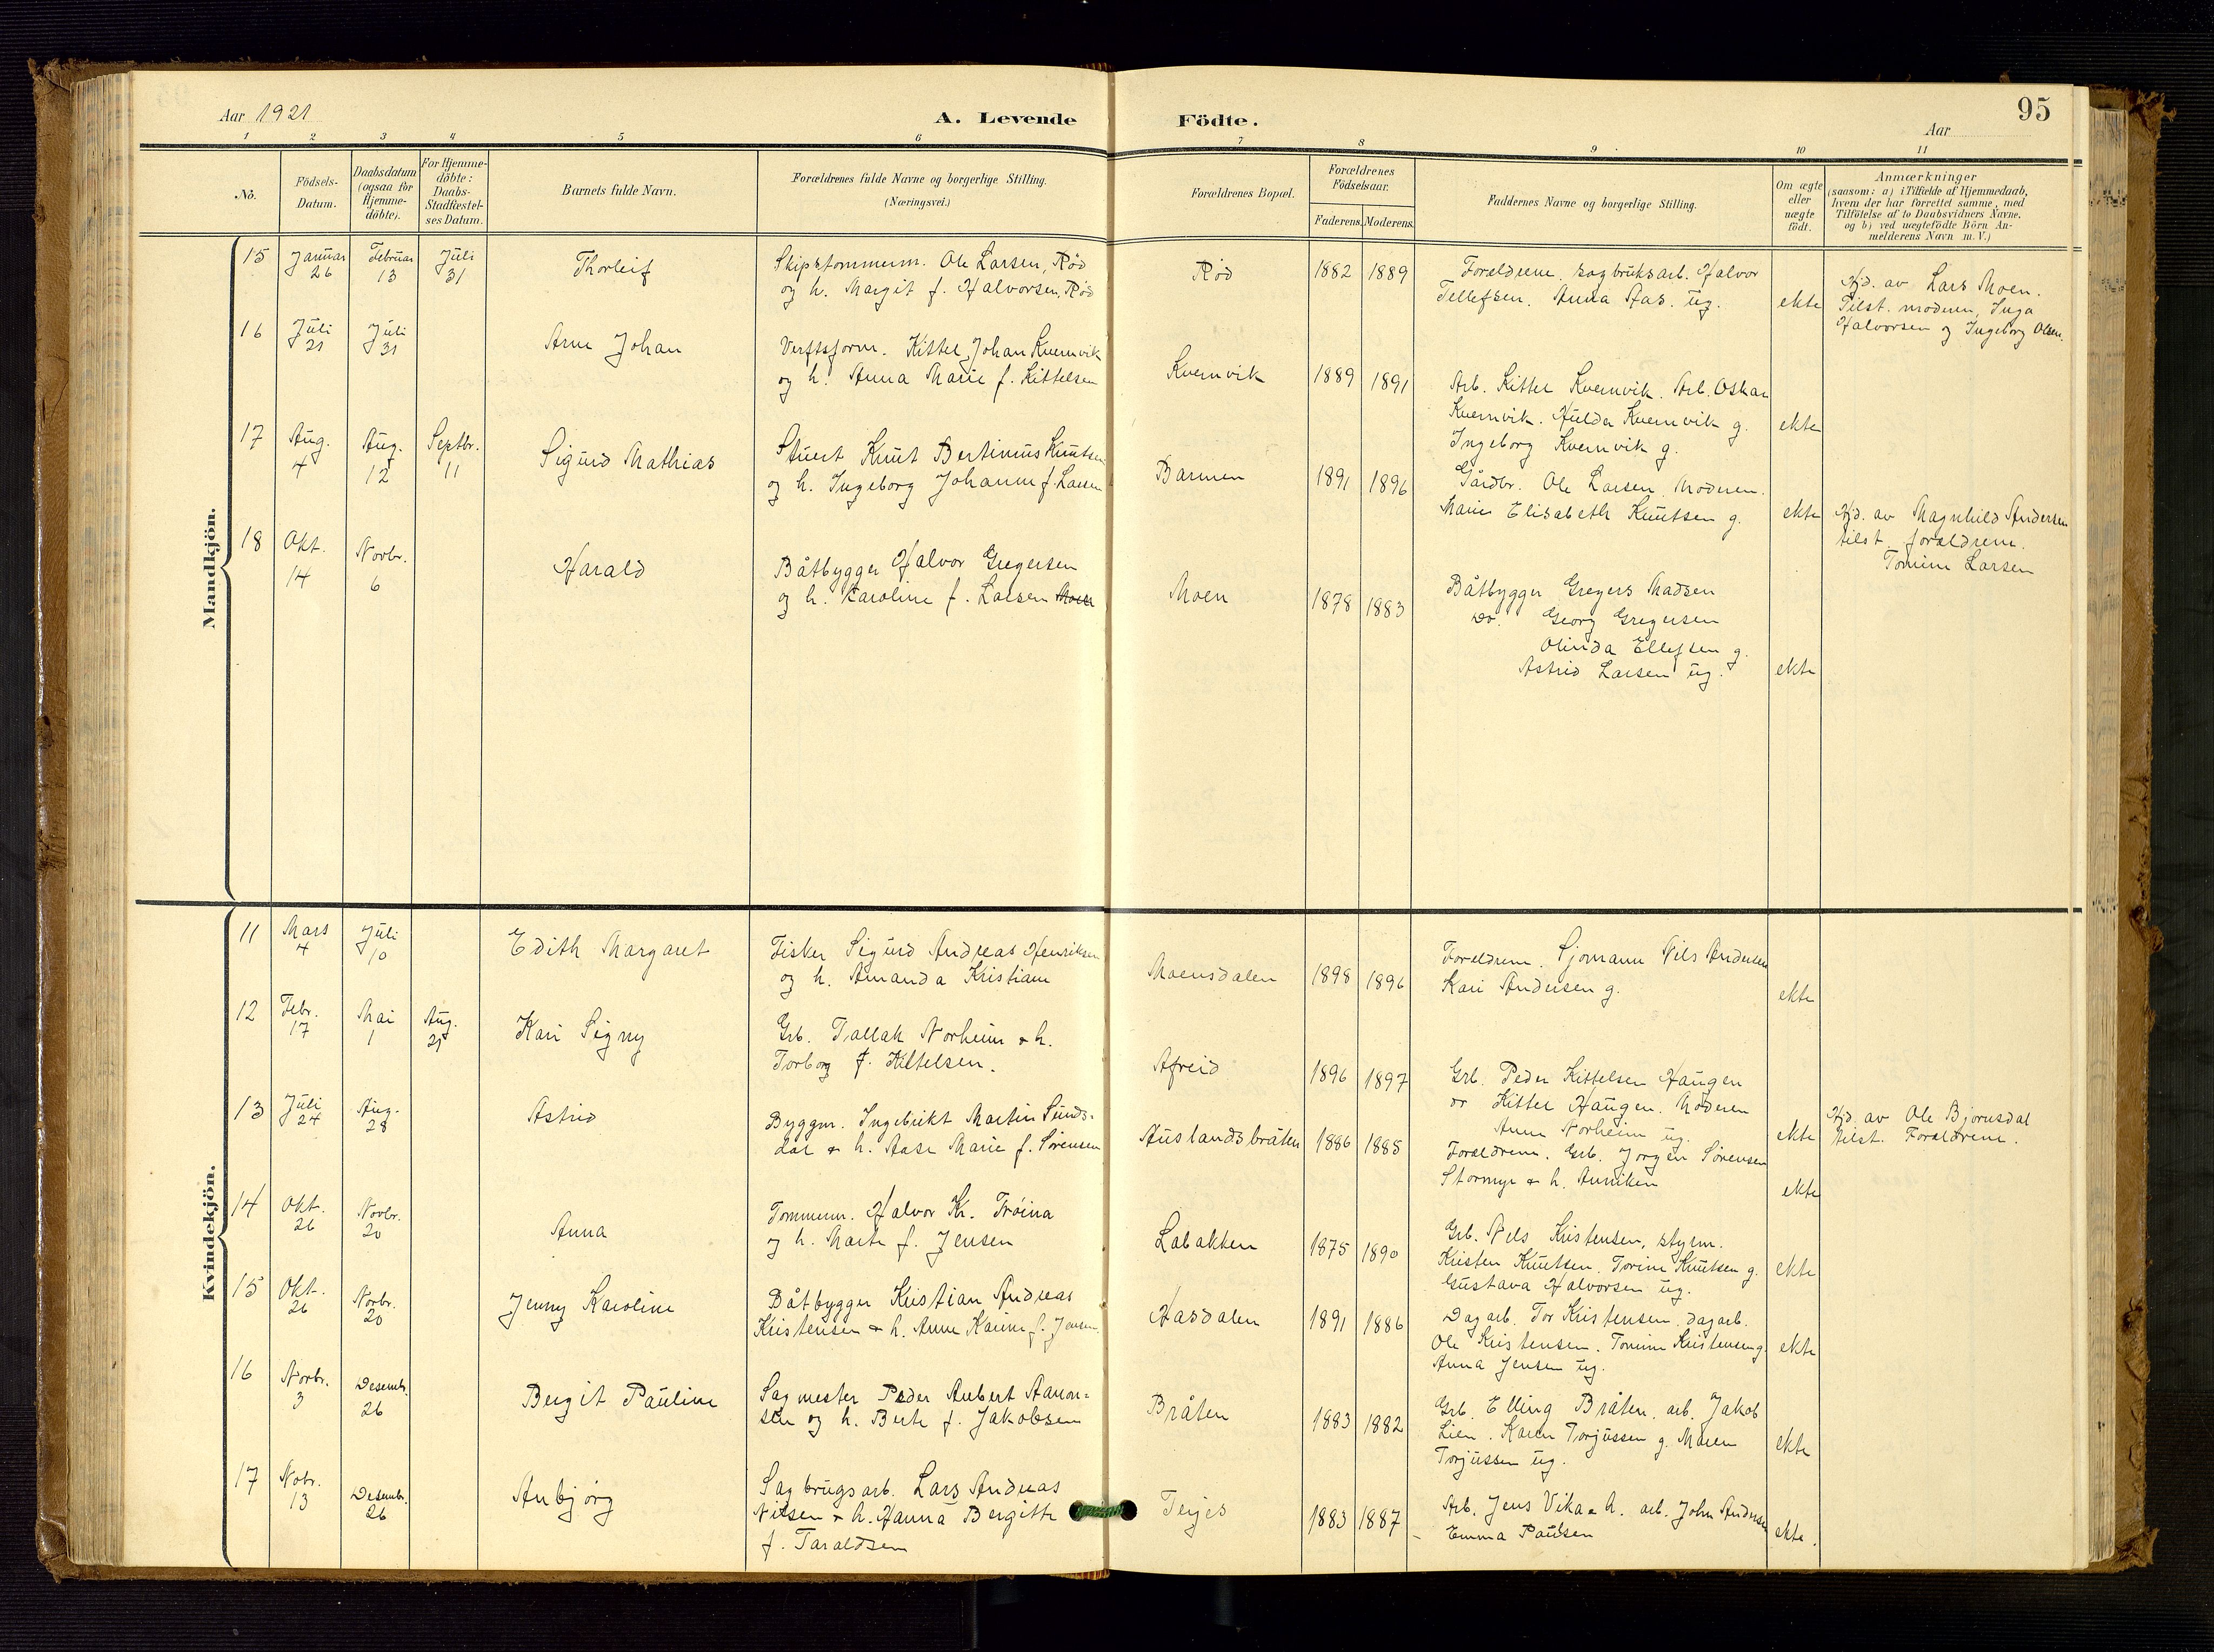 95
Aar 1921
A. Levende Födte.
Aar
1 2 3 4 5 6 7 8 9 10 11
No.
Födsels-Datum.
Daabsdatum (ogsaa for Hjemme-döbte).
For Hjemme-döbte: Daabs-Stadfæstel-ses Datum.
Barnets fulde Navn.
Forældrenes fulde Navne og borgerlige Stilling.
(Næringsvei.)
Forældrenes Bopæl.
Forældrenes Födselsaar.
Faderens. Moderens.
Faddernes Navne og borgerlige Stilling.
Om ægte eller uægte födt.
Anmærkninger
(saasom: a) i Tilfælde af Hjemmedaab,
hvem der har forrettet samme, med
Tilföielse af to Daabsvidners Navne.
og b) ved uægtefödte Börn An-
melderens Navn m. V.)
Mandkjön.
15 Januar 26 Februar 13 Juli 31 Thorleif
Skipstømmerm. Ole Larsen, Rød
og h. Margit f. Halvorsen, Rød
Rød 1882 1889
Foreldrene, sagbruksarb. Halvor
Tellefsen. Anna Aas. ug.
ekte
Hjd. av Lars Moen.
Tilst. moderen, Inga
Halvorsen og Ingeborg Olsen.
16 Juli 21 Juli 31 Arne Johan
Verftsform. Kittel Johan Kvernvik
og h. Anna Marie f. Kittelsen
Kvernvik 1889 1891
Arb. Kittel Kvernvik. Arb. Oskar
Kvernvik. Hulda Kvernvik g.
Ingeborg Kvernvik g.
ekte
17 Aug. 4 Aug. 12 Septbr. 11 Sigurd Mathias
Stuert Knut Bertinius Knutsen
og h. Ingeborg Johanne f. Larsen
Barmen 1891 1896
Gårdbr. Ole Larsen. Moderen.
Marie Elisabeth Knutsen g.
ekte
Hjd. av Magnhild Andersen
tilst. foreldrene.
Tomine Larsen
18 Okt. 14 Novbr. 6 Harald
Båtbygger Halvor Gregersen
og h. Karoline f. Larsen Moen
Moen 1878 1883
Båtbygger Gregers Madsen
Do. Georg Gregersen
Olinda Ellefsen g.
Astrid Larsen ug.
ekte
Kvindekjön.
11 Mars 4 Juli 10 Edith Margaret
Fisker Sigurd Andreas Henriksen
og h. Amanda Kristiane
Moensdalen 1898 1896
Foreldrene. Sjømann Nils Andersen
Kari Andersen g.
ekte
12 Febr. 17 Mai 1 Aug. 21 Kari Signy
Grb. Tallak Norheim & h.
Torborg f. Kittelsen.
Afreid 1896 1897
Grb. Peder Kittelsen Haugen
Kittel Haugen. Moderen
Anne Norheim ug.
ekte
Hjd. av Ole Bjørnsdal
tilst. Foreldrene.
13 Juli 24 Aug. 28 Astrid
Byggm. Ingebrikt Martin Sunds-
dal & h. Aase Marie f. Sørensen
Auslandsbråten 1886 1885
Foreldrene. Grb. Jørgen Sørensen
Stormyr & h. Anniken
ekte
14 Okt. 26 Novbr. 20 Anna
Tømmerm. Halvor Kr. Trøina
og h. Marte f. Jensen
Labakken 1875 1890
Grb. Nils Kristensen, styrm.
Kristen Knutsen. Torine Knutsen g.
Gustava Halvorsen ug.
ekte
15 Okt. 26 Novbr. 20 Jenny Karoline
Båtbygger Kristian Andreas
Kristensen & h. Anne Karine f. Jensen
Hasdalen 1891 1886
Dagarb. Tor Kristensen. dagarb.
Ole Kristensen. Tomine Kristensen g.
Anna Jensen ug.
ekte
16 Novbr. 3 Desembr. 26 Bergit Pauline
Sagmester Peder Anbert Aanon=
sen og h. Berte f. Jakobsen
Bråten 1883 1882
Grb. Elling Bråten. arb. Jakob
Lien. Karen Torjussen g. Maren
Torjussen ug.
ekte
17 Nobr. 13 Desembr. 26 Anbjørg
Sagbrugsarb. Lars Andreas
Nilsen & h. Hanna Bergitte
f. Taraldsen
Terjes 1883 1887
Arb. Jens Vika & h. arb. John Andersen
Emma Paulsen
ekte.